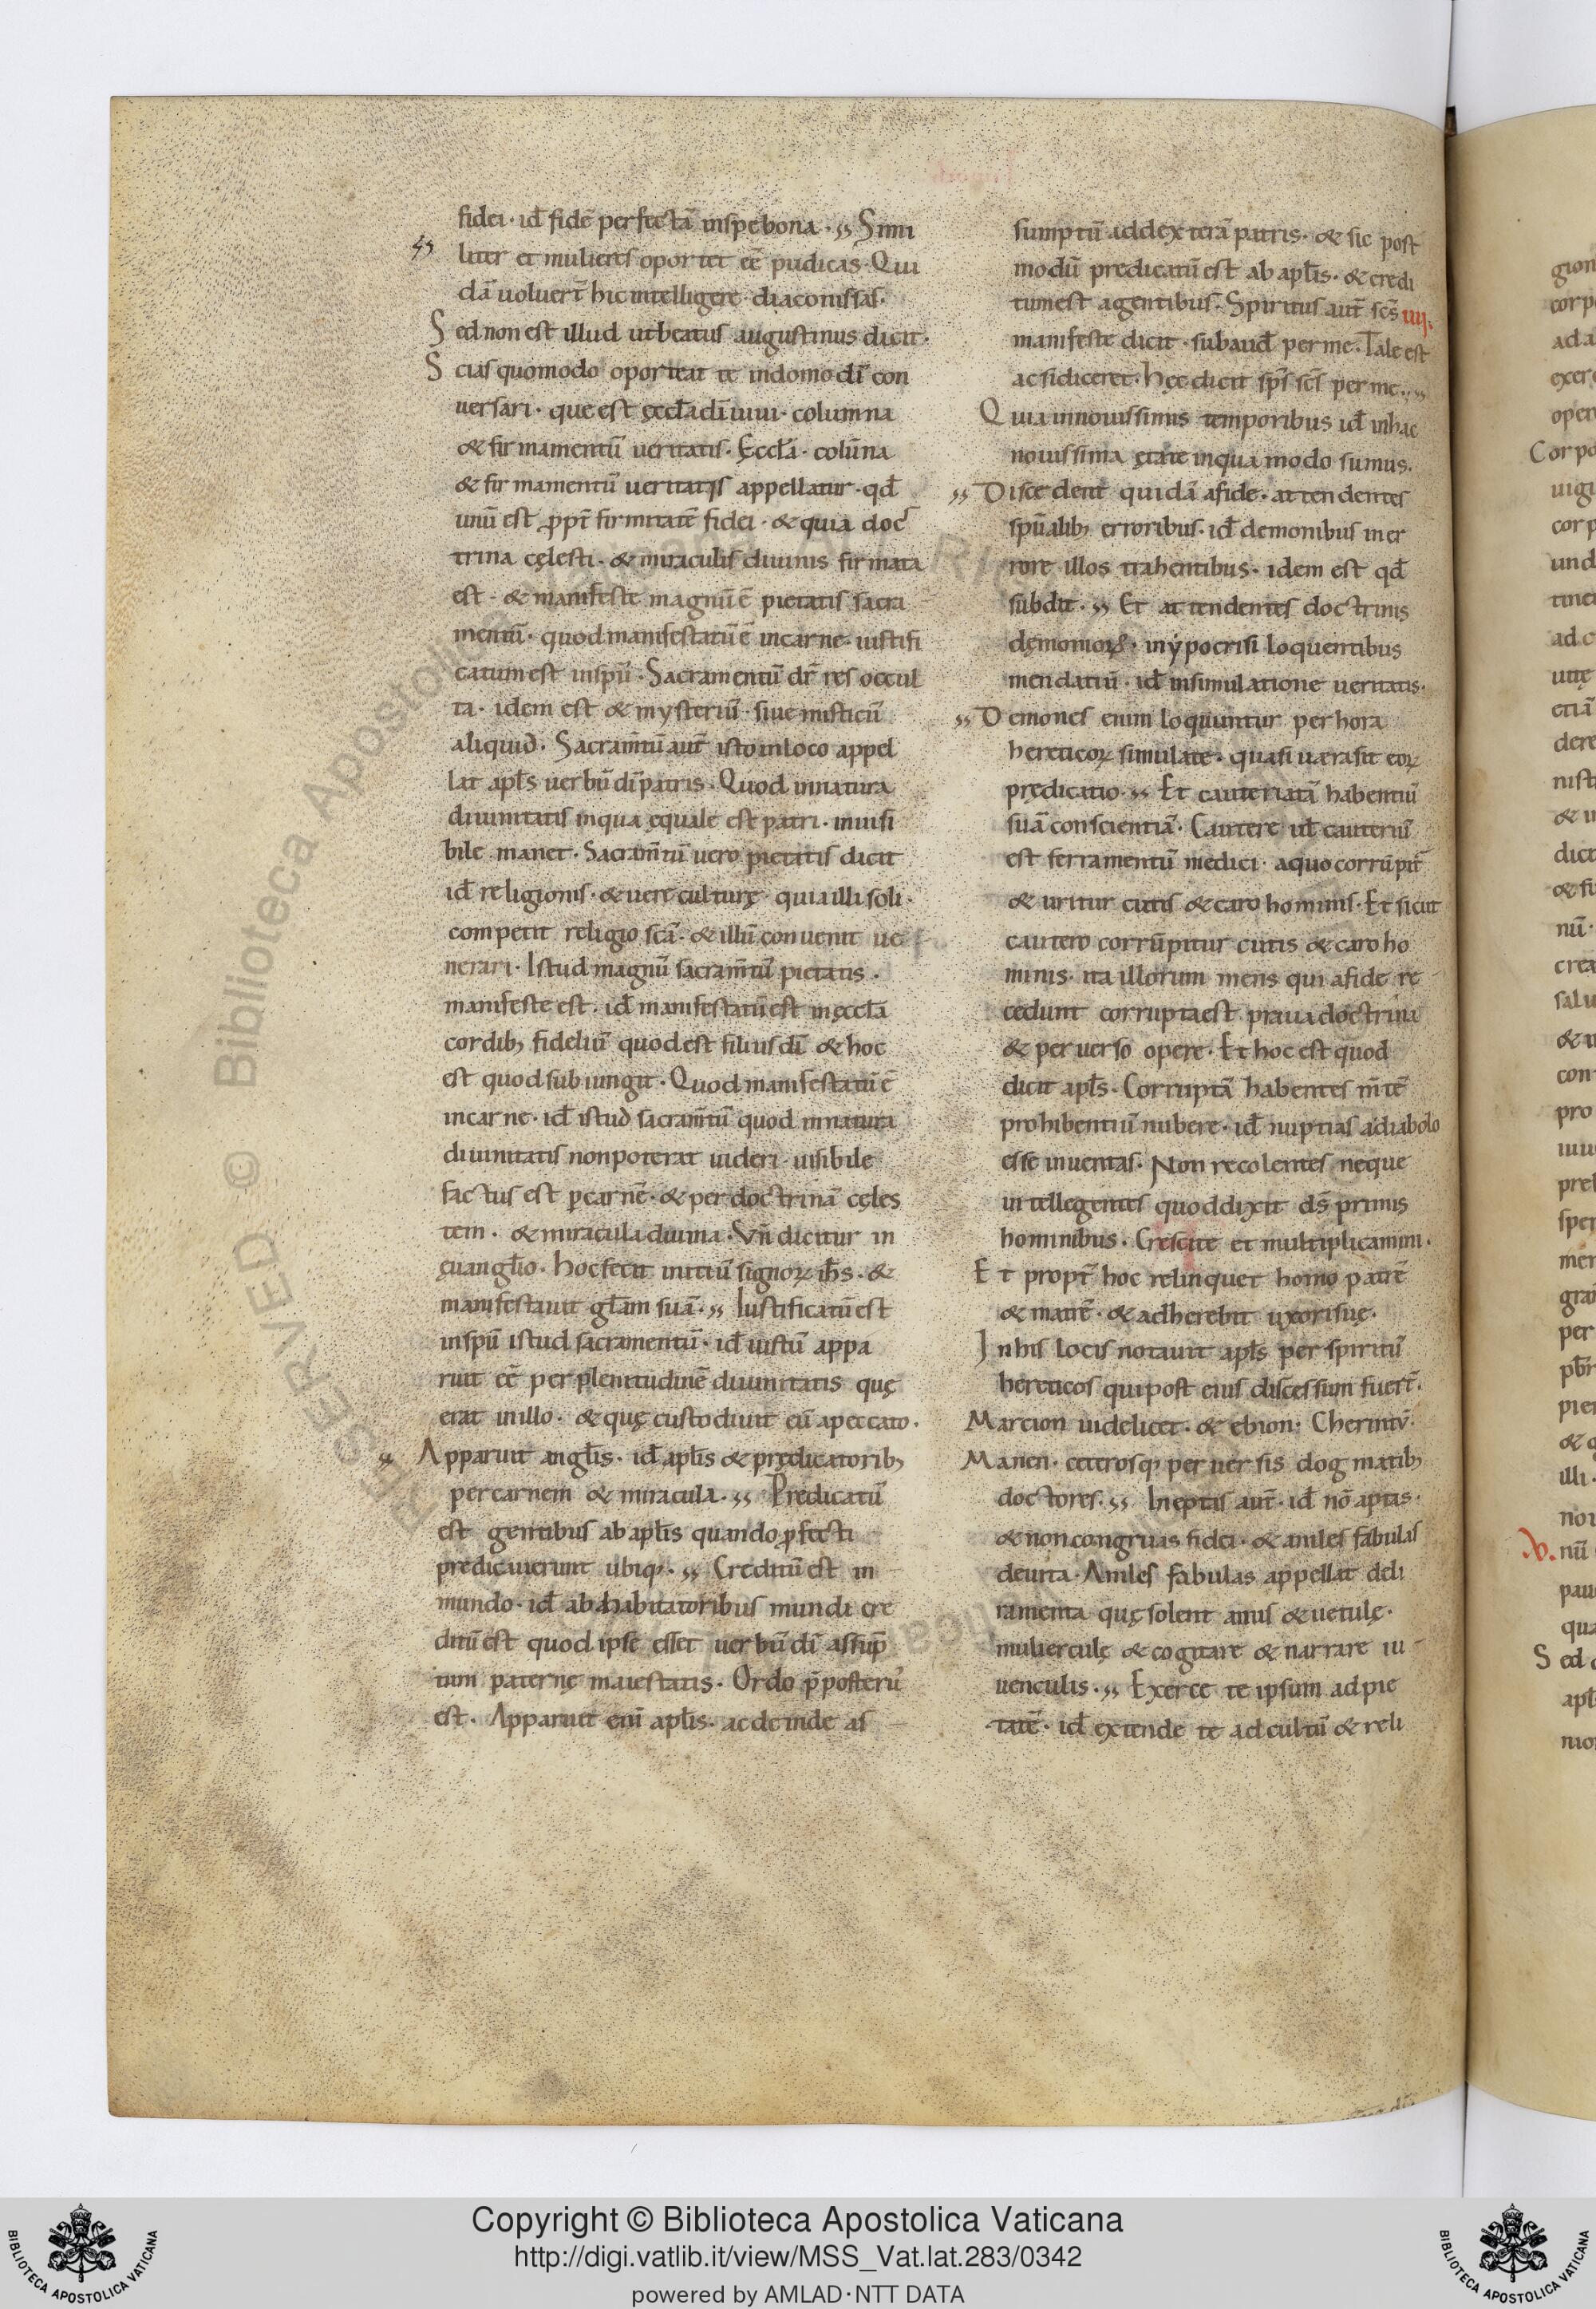 fidei · id̄ fidē perfectā inspe bona · ,, Simi
liter et mulieres oportet eē pudicas · Qui
dā uoluer̄t hic intelligere diaconissas ·
Sed non est illud ut beatus augustinus dicit ·
Scias quomodo oporteat te in domo dī con
uersari · que est ęccl̄a dī uiui · columna
& firmamentū ueritatis · Ęccl̄a · colūna
& firmamentū ueritatis appellatur · qd̄
unū est ꝓpt̄ firmitatē fidei · & quia doc
trina cęlesti · & miraculis diuinis firmata
est · & manifeste magnū ē pietatis sacra
mentū · quod manifestatū ē in carne · iustifi
catum est in spū · Sacramentū dr̄ res occul
ta · idem est & mysteriū · siue misticū
aliquid · Sacram̄tū aut̄ isto in loco appel
lat apl̄s uerbū dī patris · Quod in natura
diuinitatis in qua ęquale est patri · inuisi
bile manet · Sacram̄tū uero pietatis dicit
id̄ religionis · & uere culturę · quia illi soli ·
competit religio scā · & illū conuenit ue
nerari · Istud magnū sacram̄tū pietatis ·
manifeste est · id̄ manifestatū est in ęccl̄a
cordib; fideliū quod est filius dī & hoc
est quod subiungit · Quod manifestatū ē
in carne · id̄ istud sacram̄tū quod in natura
diuinitatis non poterat uideri · uisibile
factus est ꝑ carnē · & per doctrinā cęles
tem · & miracula diuina · Vn̄ dicitur in
ęuangl̄io · hoc fecit initiū signoꝝ ih̄s · &
manifestauit gl̄am suā · ,, Iustificatū est
in spū istud sacramentū · id̄ iustū appa
ruit eē per plenitudinē diuinitatis quę
erat in illo · & quę custodiuit eū a peccato ·
Apparuit angl̄is · id̄ apl̄is & prędicatorib;
per carnem & miracula · ,, Predicatū
est gentibus ab apl̄is quando ꝓfecti
predicauerunt ubiq; · ,, Creditū est in
mundo · id̄ ab habitatoribus mundi cre
ditū est quod ipse esset uerbū dī assūp
tum paternę maiestatis · Ordo p̄posterus
est · Apparuit enī apl̄is · ac deinde as
sumptū ad dexterā patris · & sic post
modū predicatū est ab apl̄is · & credi
tum est a gentibus · Spiritus aut̄ scs̄ iiij.
manifeste dicit · subaud̄ per me · Tale est
ac si diceret · hęc dicit sps̄ scs̄ per me · ,,
Quia in nouissimis temporibus id̄ in hac
nouissima ętate in qua modo sumus ·
,, Discedent quidā a fide · attendentes
spūalib; erroribus · id̄ demonibus in er
rore illos trahentibus · idem est qd̄
subdit · ,, Et attendentes doctrinis
dęmonioꝝ · in ypocrisi loquentibus
mendatiū · id̄ in simulatione ueritatis ·
,, Demones enim loquuntur per hora
hereticoꝝ simulate · quasi uera sit eoꝝ
prędicatio · ,, Et cauteriatā habentiū
suā conscientiā · Cautere ul̄ cauteriū
est ferramentū medici · a quo corrūpit̄
& uritur cutis & caro hominis · Et sicut
cautero corrūpitur cutis & caro ho
minis · ita illorum mens qui a fide re
cedunt corrupta est praua doctrina
& peruerso opere · Et hoc est quod
dicit apl̄s · Corruptā habentes m̄tē
prohibentiū nubere · id̄ nuptias a diabolo
esse inuentas · Non recolentes neque
intellegentes quod dixit ds̄ primis
hominibus · Crescite et multiplicamini ·
Et propt̄ hoc relinquet homo patrē
& matrē · & adherebit uxori suę ·
In his locis notauit apl̄s per spiritū
hereticos qui post eius discessum fuer̄t ·
Marcion uidelicet · & ebion · Cherintū ·
Manen · ceterosq; peruersis dogmatib;
doctores · ,, Ineptas aut̄ · id̄ nō aptas ·
& non congruas fidei · & aniles fabulas
deuita · Aniles fabulas appellat deli
ramenta quę solent anus & uetulę ·
mulierculę & cogitare & narrare iu
uenculis · ,, Exerce te ipsum ad pie
tatē · id̄ extende te ad cultū & reli
Copyright © Biblioteca Apostolica Vaticana
http://digi.vatlib.it/view/MSS_Vat.lat.283/0342
powered by AMLAD·NTT DATA